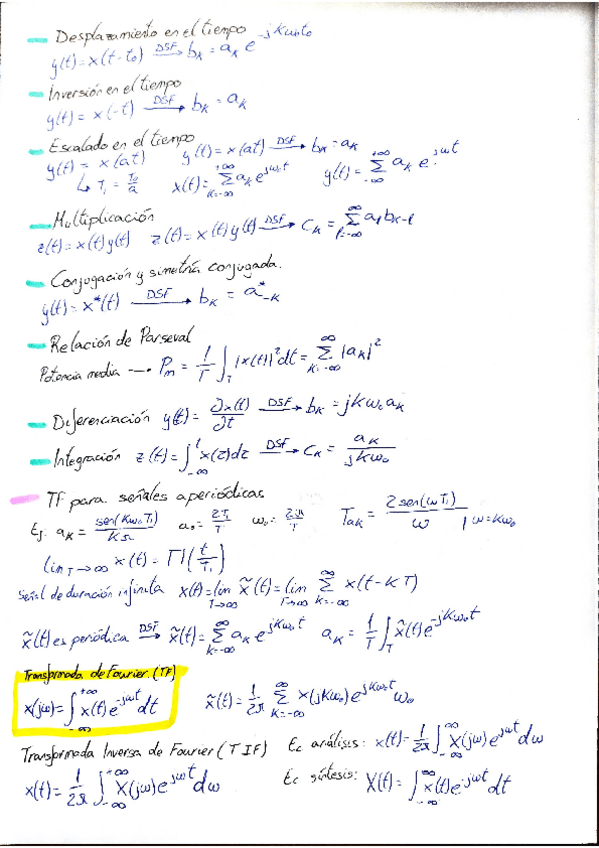 Desplazamiento en el tiempo
y(t)=x(t-t₀) DSF→ bₖ = aₖ e^(-jKω₀t₀)
Inversión en el tiempo
y(t)= x(-t) DSF→ bₖ = aₖ
Escalado en el tiempo
y(t)= x(at) y(t)=x(at) DSF→ bₖ = aₖ
↳ T₁ = T₀/a x(t)= Σ_(K=-∞)^(+∞) aₖ e^(jω₀t) y(t)= Σ_(-∞)^(+∞) aₖ e^(jωt)
Multiplicación
z(t)=x(t)y(t) z(t)=x(t)y(t) DSF→ Cₖ = Σ_(l=-∞)^(∞) aₗ bₖ₋ₗ
Conjugación y simetría conjugada.
y(t)= x*(t) DSF→ bₖ = a*₋ₖ
Relación de Parseval
Potencia media → Pₘ = 1/T ∫_T |x(t)|² dt = Σ_(K=-∞)^(∞) |aₖ|²
Diferenciación y(t)= ∂x(t)/∂t DSF→ bₖ = jKω₀aₖ
Integración z(t)= ∫_(-∞)^t x(τ)dτ DSF→ Cₖ = aₖ/jKω₀
TF para señales aperiódicas
Ej. aₖ = sen(Kω₀T₁)/Kπ a₀= 2T₁/T ω₀= 2π/T Taₖ = 2sen(ωT₁)/ω |ω=Kω₀
lim T→∞ x(t)= Π(t/T₁)
Señal de duración infinita x(t)=lim_(T→∞) x̃(t)= lim_(T→∞) Σ_(K=-∞)^(∞) x(t-KT)
x̃(t) es periódica DSF→ x̃(t)= Σ_(K=-∞)^(∞) aₖ e^(jKω₀t) aₖ = 1/T ∫_T x̃(t)e^(-jKω₀t)
Transformada de Fourier (TF)
x(jω)= ∫_(-∞)^(+∞) x(t) e^(-jωt) dt x̃(t)= 1/2π Σ_(K=-∞)^(∞) x(jKω₀)e^(jKω₀t) ω₀
Transformada Inversa de Fourier (TIF) Ec análisis: x(t)= 1/2π ∫_(-∞)^(∞) X(jω)e^(jωt) dω
x(t)= 1/2π ∫_(-∞)^(+∞) X(jω)e^(jωt) dω Ec síntesis: X(t)= ∫_(-∞)^(∞) x(t)e^(-jωt) dt